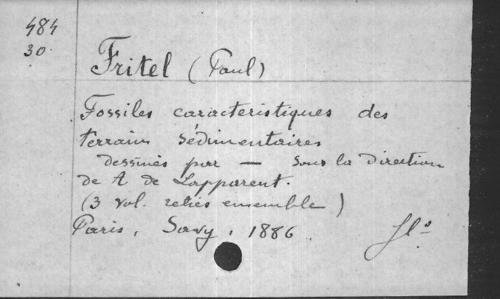 484
30
Fritel (Paul)
Fossiles caracteristiques des
terrains sédimentaires
dessinés par — Sous la Direction
de A de Lapparent.
(3 vol. reliés ensemble)
Paris, Savy, 1886
fl°